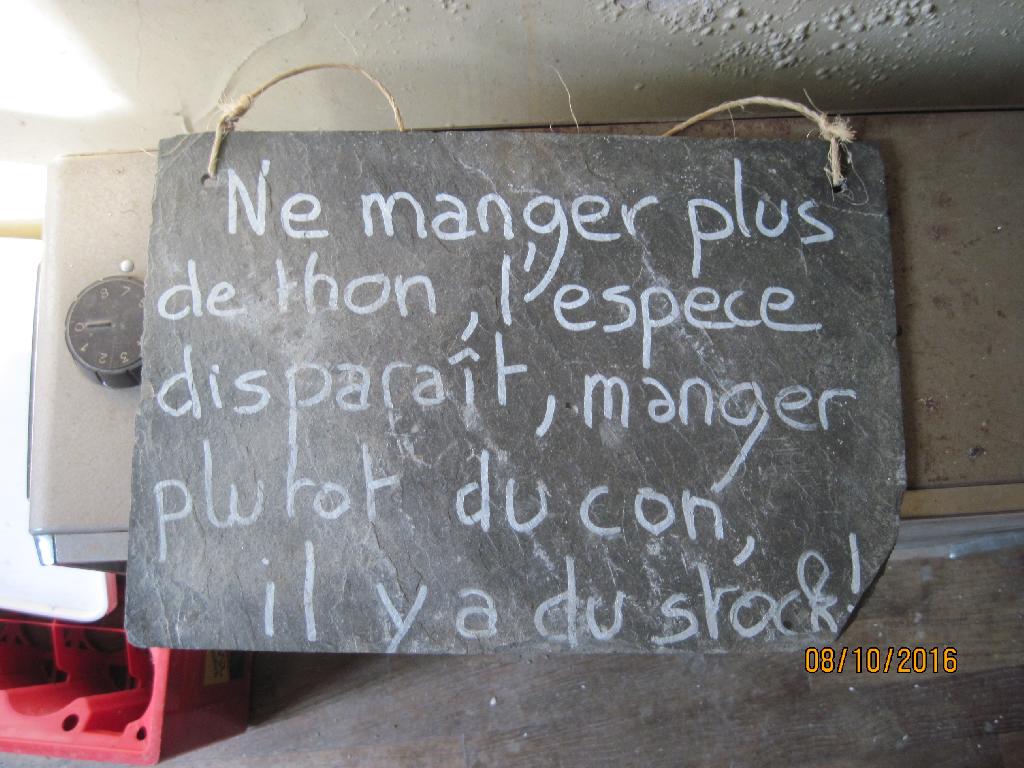 Ne manger plus
de thon, l'espece
disparaît, manger
plutot du con,
il y a du stock!
08/10/2016